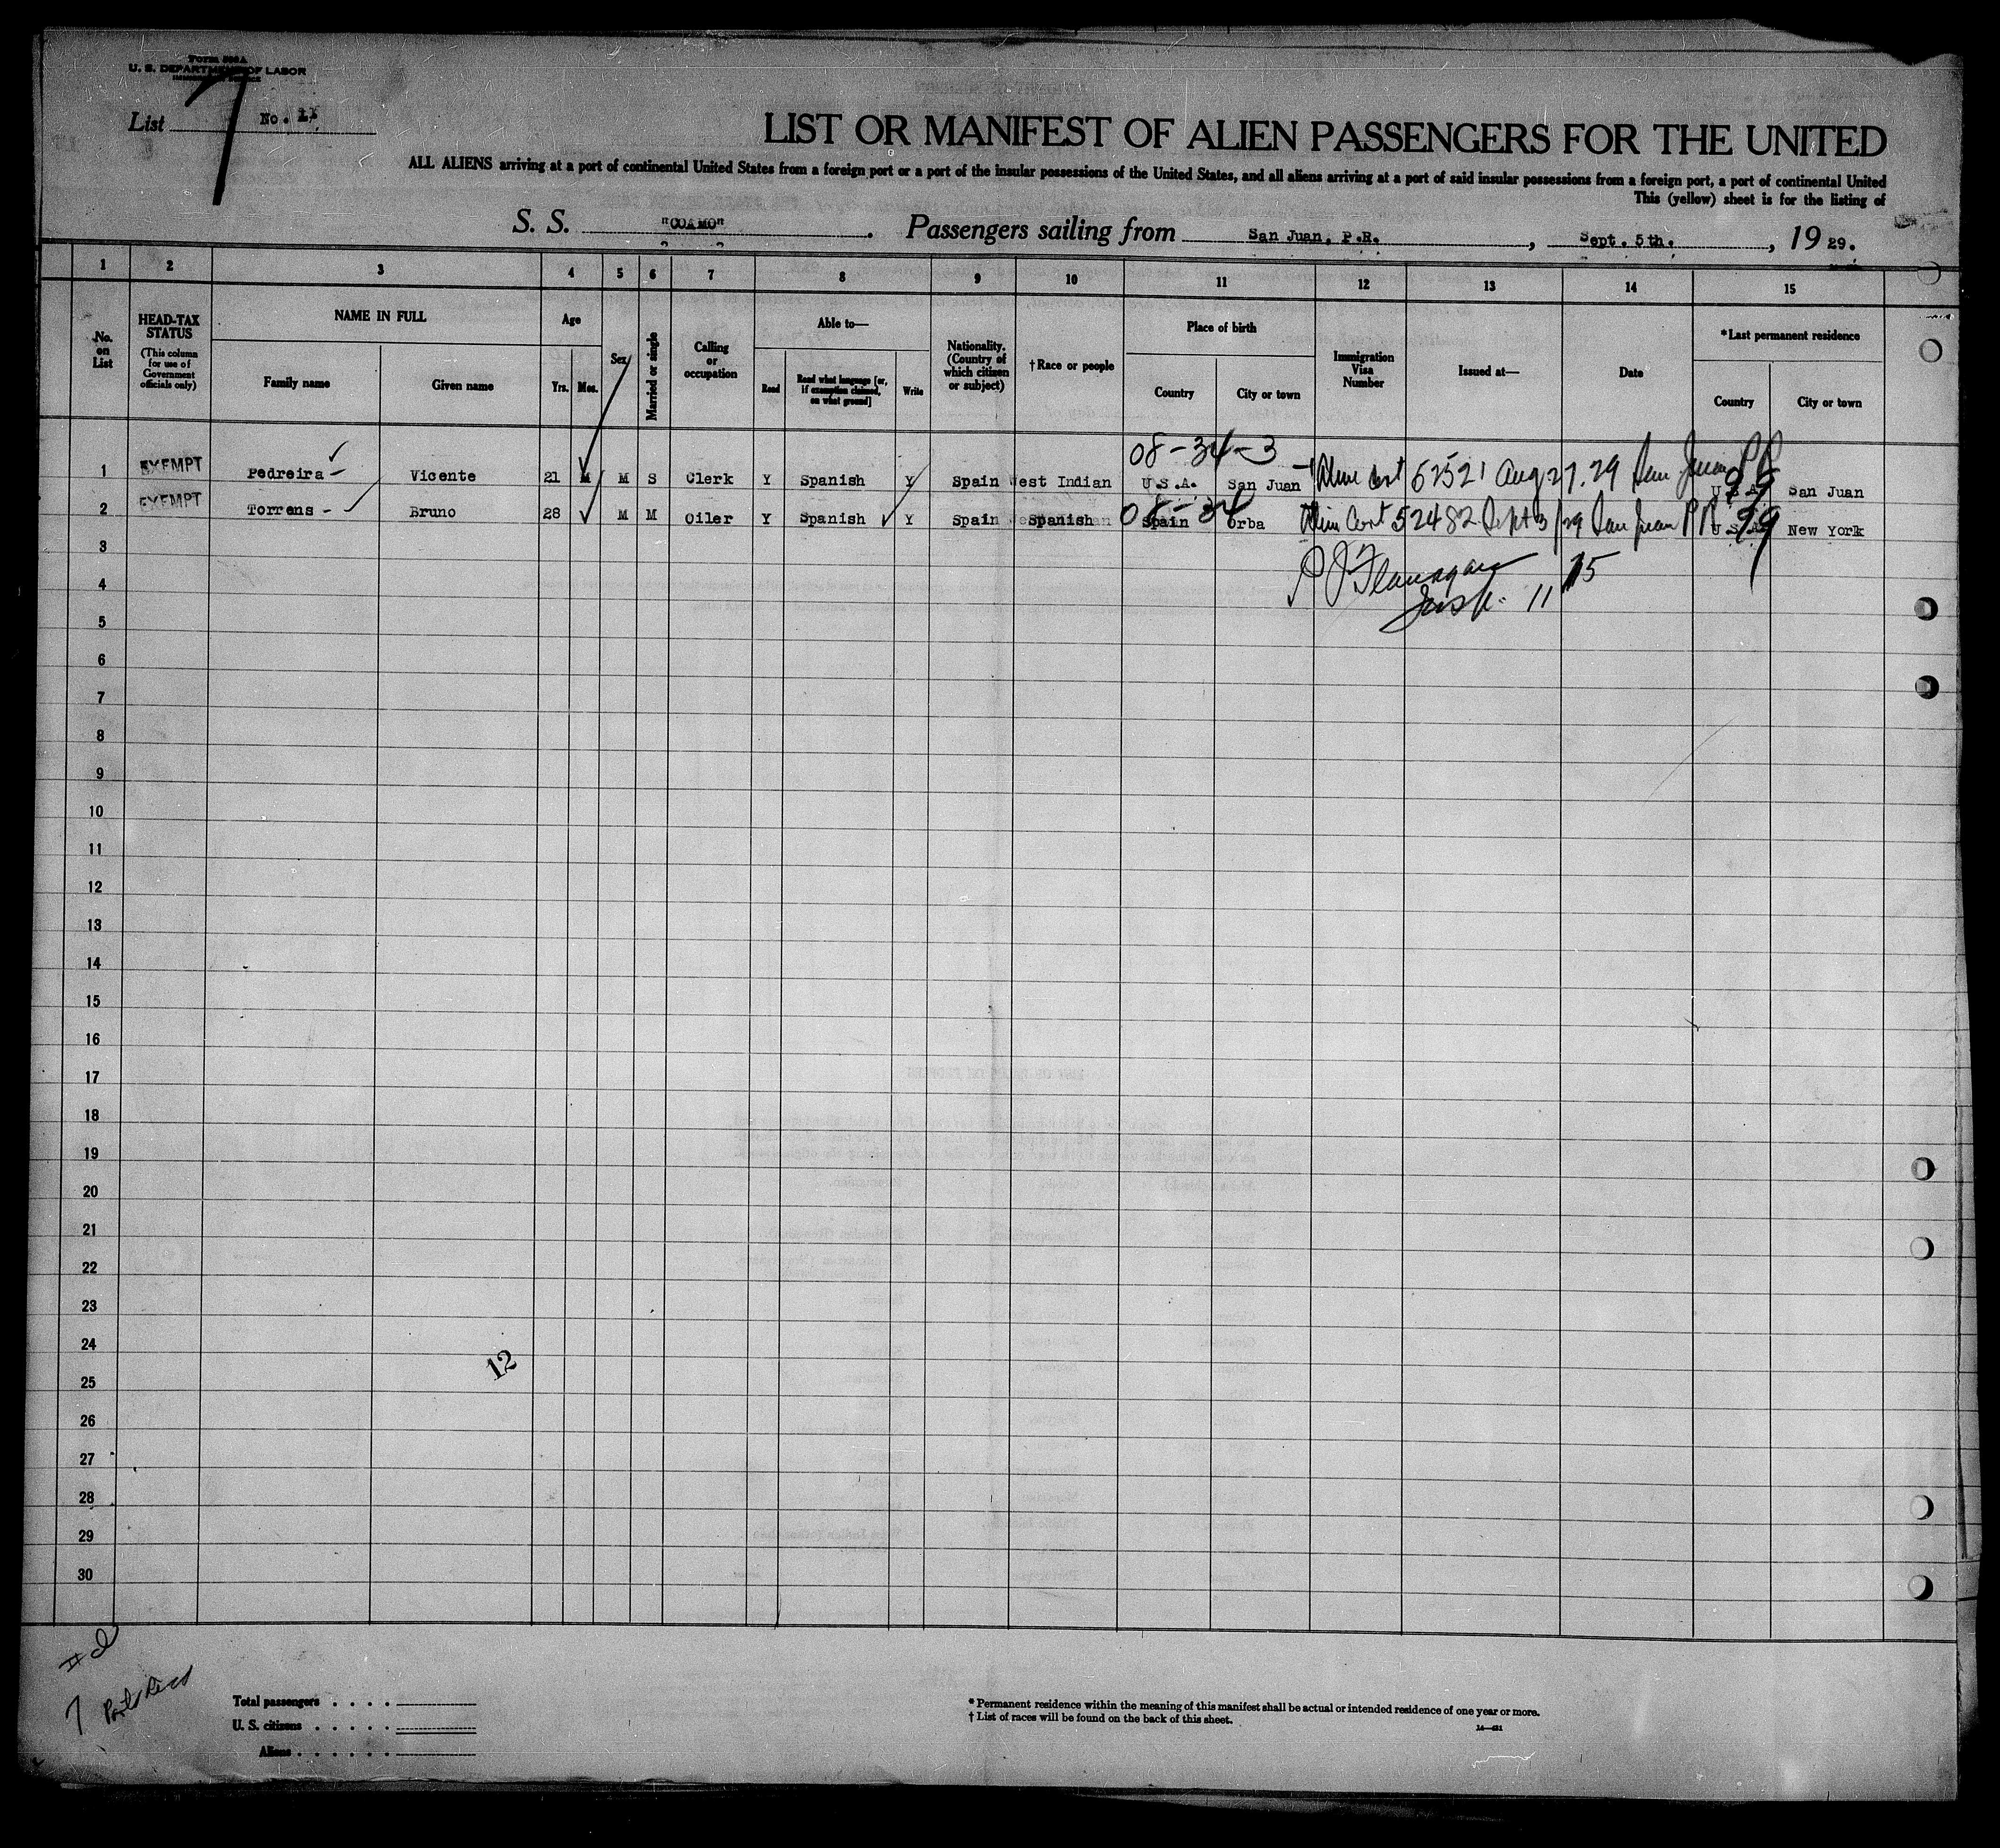 Form 500A
U. S. DEPARTMENT OF LABOR
List 7 No. 11
LIST OR MANIFEST OF ALIEN PASSENGERS FOR THE UNITED
ALL ALIENS arriving at a port of continental United States from a foreign port or a port of the insular possessions of the United States, and all aliens arriving at a port of said insular possessions from a foreign port, a port of continental United
This (yellow) sheet is for the listing of
S. S. "COAMO". Passengers sailing from San Juan, P.R., Sept. 5th., 1929.
1 2 3 4 5 6 7 8 9 10 11 12 13 14 15
No. on List
HEAD-TAX STATUS
(This column for use of Government officials only)
NAME IN FULL
Family name Given name
Age
Yrs. Mos.
Sex
Married or single
Calling or occupation
Able to—
Read Read what language [or, if exemption claimed, on what ground] Write
Nationality. (Country of which citizen or subject)
†Race or people
Place of birth
Country City or town
Immigration Visa Number
Issued at—
Date
*Last permanent residence
Country City or town
08-34-3
1 EXEMPT Pedreira Vicente 21 M M S Clerk Y Spanish Y Spain West Indian U.S.A. San Juan 52521 Aug 27.29 San Juan PR U.S.A. 99 San Juan
08-34
2 EXEMPT Torrens Bruno 28 M M Oiler Y Spanish Y Spain Spanish Spain Orba 52482 Sept 3/29 San Juan PR U.S.A. 99 New York
3
P J Flanagan 15
4
Insp. 11
5
6
7
8
9
10
11
12
13
14
15
16
17
18
19
20
21
22
23
24
12
25
26
27
28
29
30
7 Porto Rico
Total passengers . . . .
U. S. citizens . . . . .
Aliens . . . . . .
* Permanent residence within the meaning of this manifest shall be actual or intended residence of one year or more.
† List of races will be found on the back of this sheet.
14—431